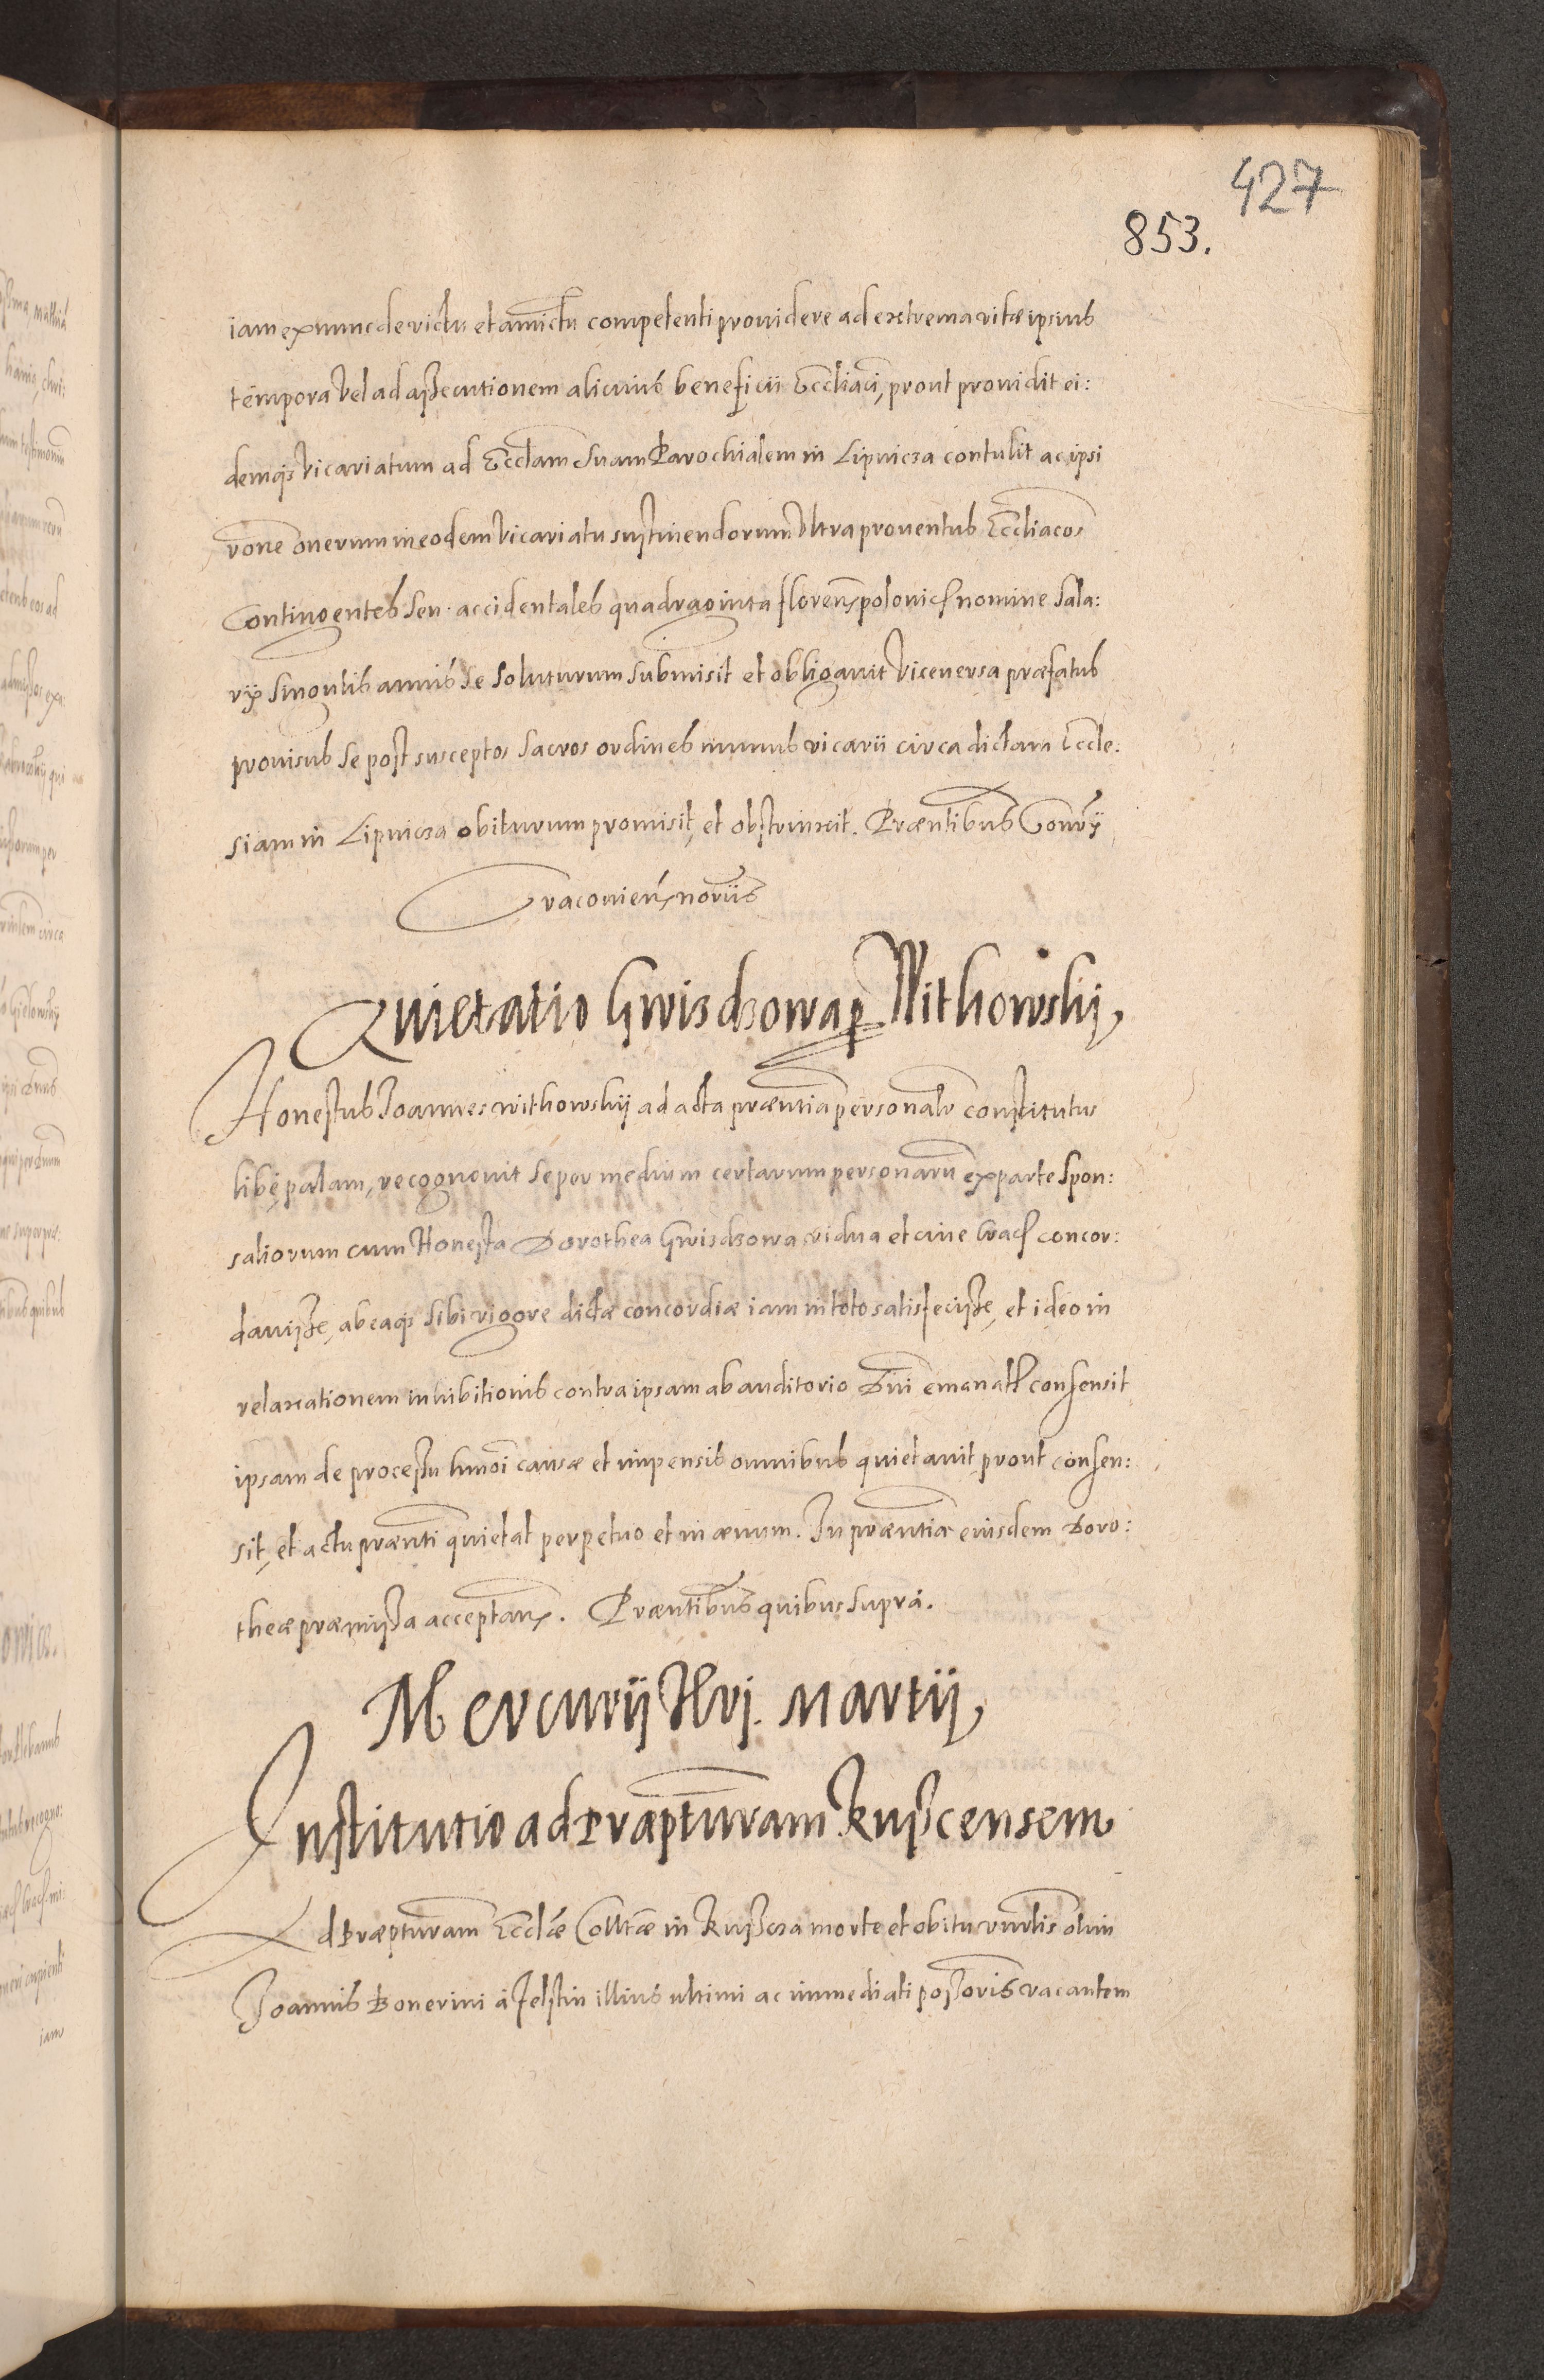 427
853.
iam ex nunc de victu et amictu competenti prouidere ad extrema vitæ ipsius
tempora vel ad assecutionem alicuius beneficii Eccliaci, prout prouidit ei:
demq3 vicariatum ad Ecclam suam Parochialem in Lipnicza contulit ac ipsi
rone onerum in eodem vicariatu sustinendorum vltra prouentus Eccliacos
Contingentes seu accidentales quadraginta florens polonic nomine sala:
rij singulis annis se soluturum submisit et obligauit viceuersa præfatus
prouisus se post susceptos sacros ordines munus vicarii circa dictam Eccle:
siam in Lipnicza obiturum promisit, et obstrinxit. Præntibus Consrij
Cracouien noriis
Quietatio Gwisdzowa p Withowskij
Honestus Joannes withowskij ad acta præntia personalr constitutus
libe palam, recognouit se per medium certarum personaru ex parte spon:
saliorum cum Honesta Dorothea Gwisdzowa vidua et ciue Crac concor:
dauisse, ab eaq3 sibi vigore dictæ concordiæ iam in toto satisfecisse, et ideo in
relaxationem inhibitionis contra ipsam ab auditorio Dni emanat consensit
ipsam de processu hmoi causæ et impensis omnibus quietauit prout consen:
sit, et actu prænti quietat perpetuo et in æuum. In præntia eiusdem Doro:
theæ præmissa acceptan. Præntibus quibus supra.
Mercurij xvj. Martij
Institutio ad Præpturam Kyiscensem
Ad Præpturam Ecclæ Colltæ in Kyiscza morte et obitu vnrlis olim
Joannis Bonerini à Jelstin illius ultimi ac immediati possoris vacantem